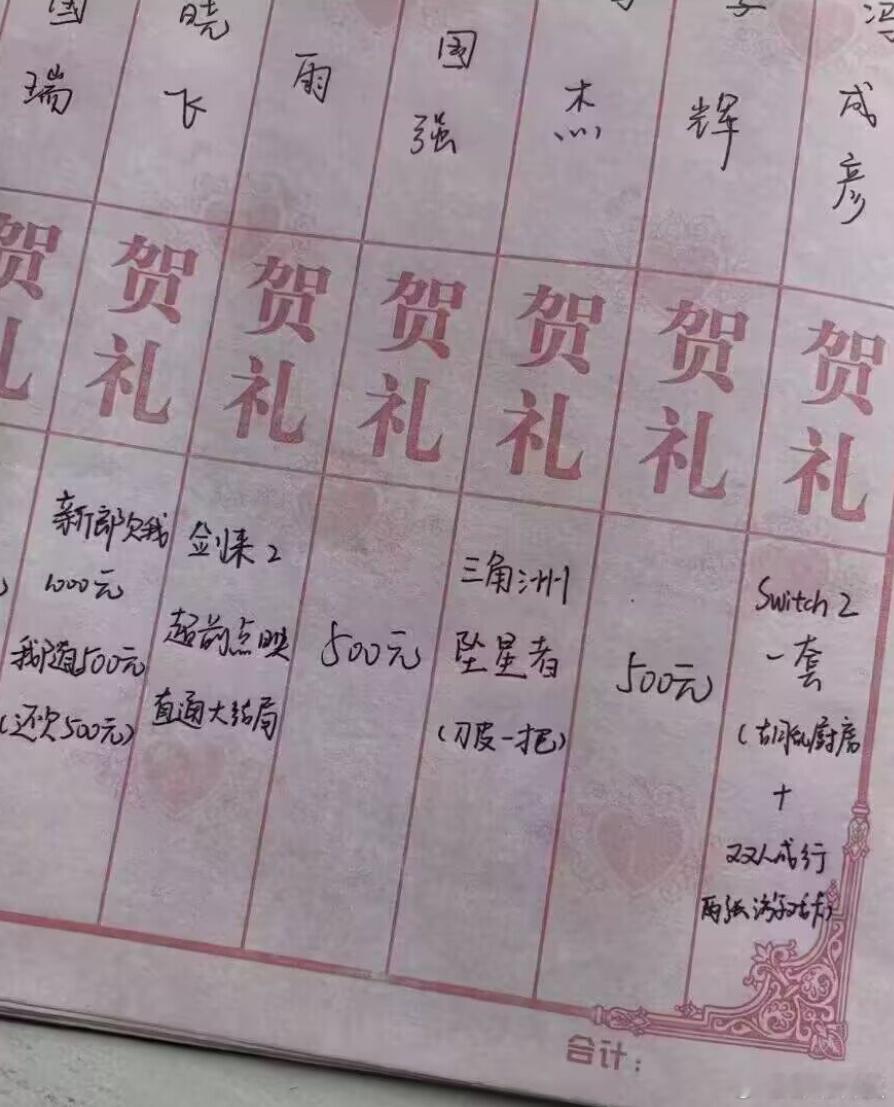 国
瑞
晓
飞
雨
国
强
杰
辉
冯
成
彦
贺
礼
贺
礼
贺
礼
贺
礼
贺
礼
贺
礼
贺
礼
新郎欠我
1000元
我随500元
(还欠500元)
剑来2
超前点映
直通大结局
500元
三角洲
坠星者
(刀皮一把)
500元
Switch 2
一套
(胡乱厨房
+
双人成行
两张游戏卡)
合计: